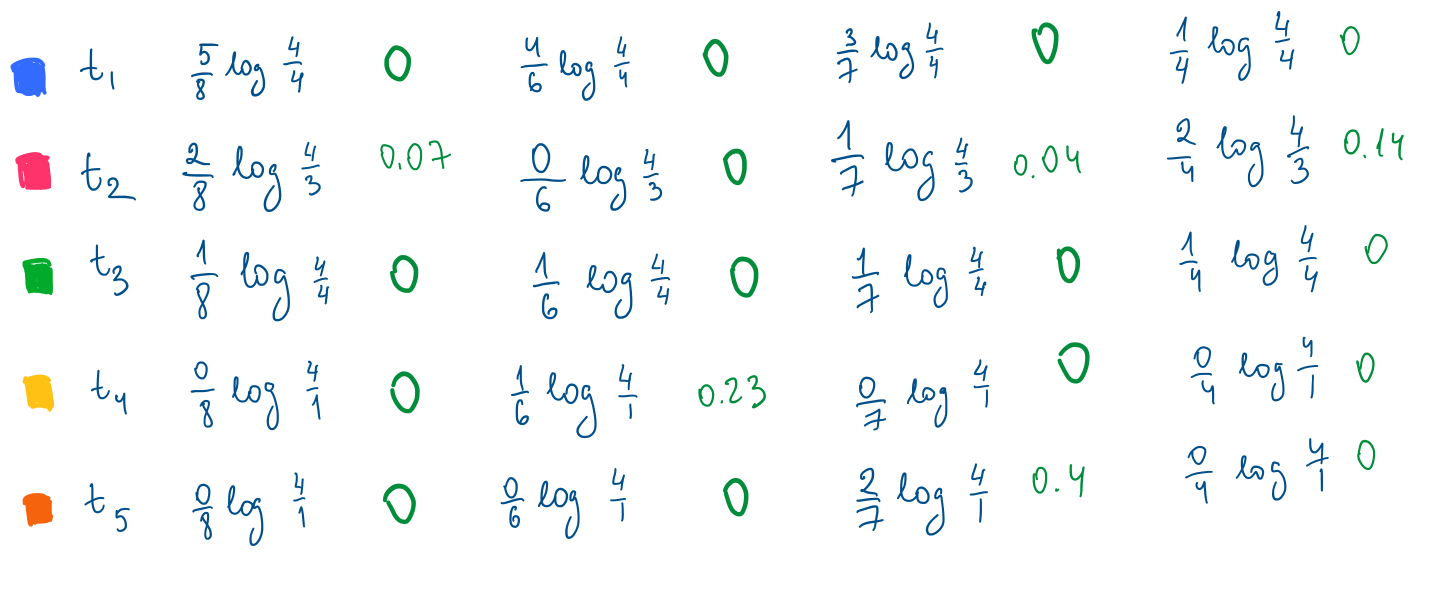 t₁ 5/8 log 4/4 0 4/6 log 4/4 0 3/7 log 4/4 0 1/4 log 4/4 0
t₂ 2/8 log 4/3 0.07 0/6 log 4/3 0 1/7 log 4/3 0.04 2/4 log 4/3 0.14
t₃ 1/8 log 4/4 0 1/6 log 4/4 0 1/7 log 4/4 0 1/4 log 4/4 0
t₄ 0/8 log 4/1 0 1/6 log 4/1 0.23 0/7 log 4/1 0 0/4 log 4/1 0
t₅ 0/8 log 4/1 0 0/6 log 4/1 0 2/7 log 4/1 0.4 0/4 log 4/1 0